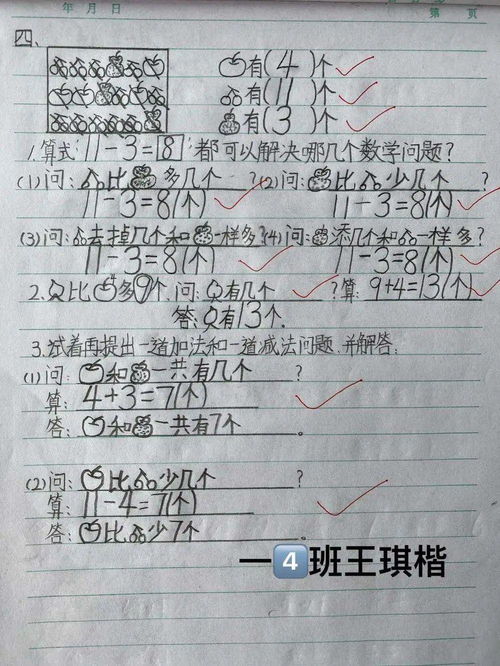 年 月 日
第 页
四、
有(4)个
有(11)个
有(3)个
1.算式11-3=8 都可以解决哪几个数学问题?
(1)问:比多几个? (2)问:比少几个?
11-3=8(个) 11-3=8(个)
(3)问:去掉几个和一样多? (4)问:添几个和一样多?
11-3=8(个) 11-3=8(个)
2.比多9个.问:有几个? 算:9+4=13(个)
答:有13个.
3.试着再提出一道加法和一道减法问题,并解答:
(1)问:和一共有几个?
算:4+3=7(个)
答:和一共有7个。
(2)问:比少几个?
算:11-4=7(个)
答:比少7个。
一4班王琪楷